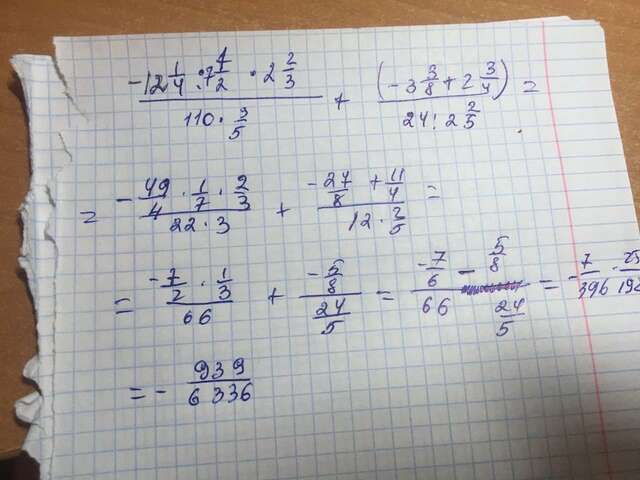 -12 1/4 : 7 1/2 · 2 2/3 / 110 · 3/5 + (-3 3/8 + 2 3/4) / 24 : 2 2/5 =
= -49/4 · 1/7 · 2/3 / 22 · 3 + -27/8 + 11/4 / 12 · 2/5 =
= -7/2 · 1/3 / 66 + -5/8 / 24/5 = -7/6 / 66 - 5/8 / 24/5 = -7/396 ·
= - 939/6336